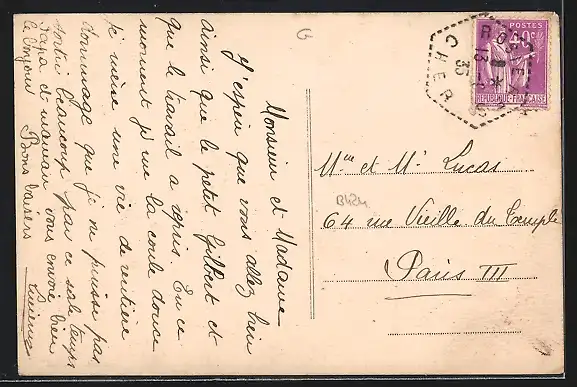 Monsieur et Madame
J'espère que vous allez bien
ainsi que le petit Gilbert et
que le travail a repris. En ce
moment je me la coule douce
je mène une vie de rentière
dommage que je ne puisse pas
sortir beaucoup par ce sale temps
Papa et maman vous envoie bien
le bonjour Bons baisers
Lucienne
POSTES
40c
REPUBLIQUE FRANCAISE
CHER
13
35
Mme et Mr Lucas
64 rue Vieille du Temple
Paris III